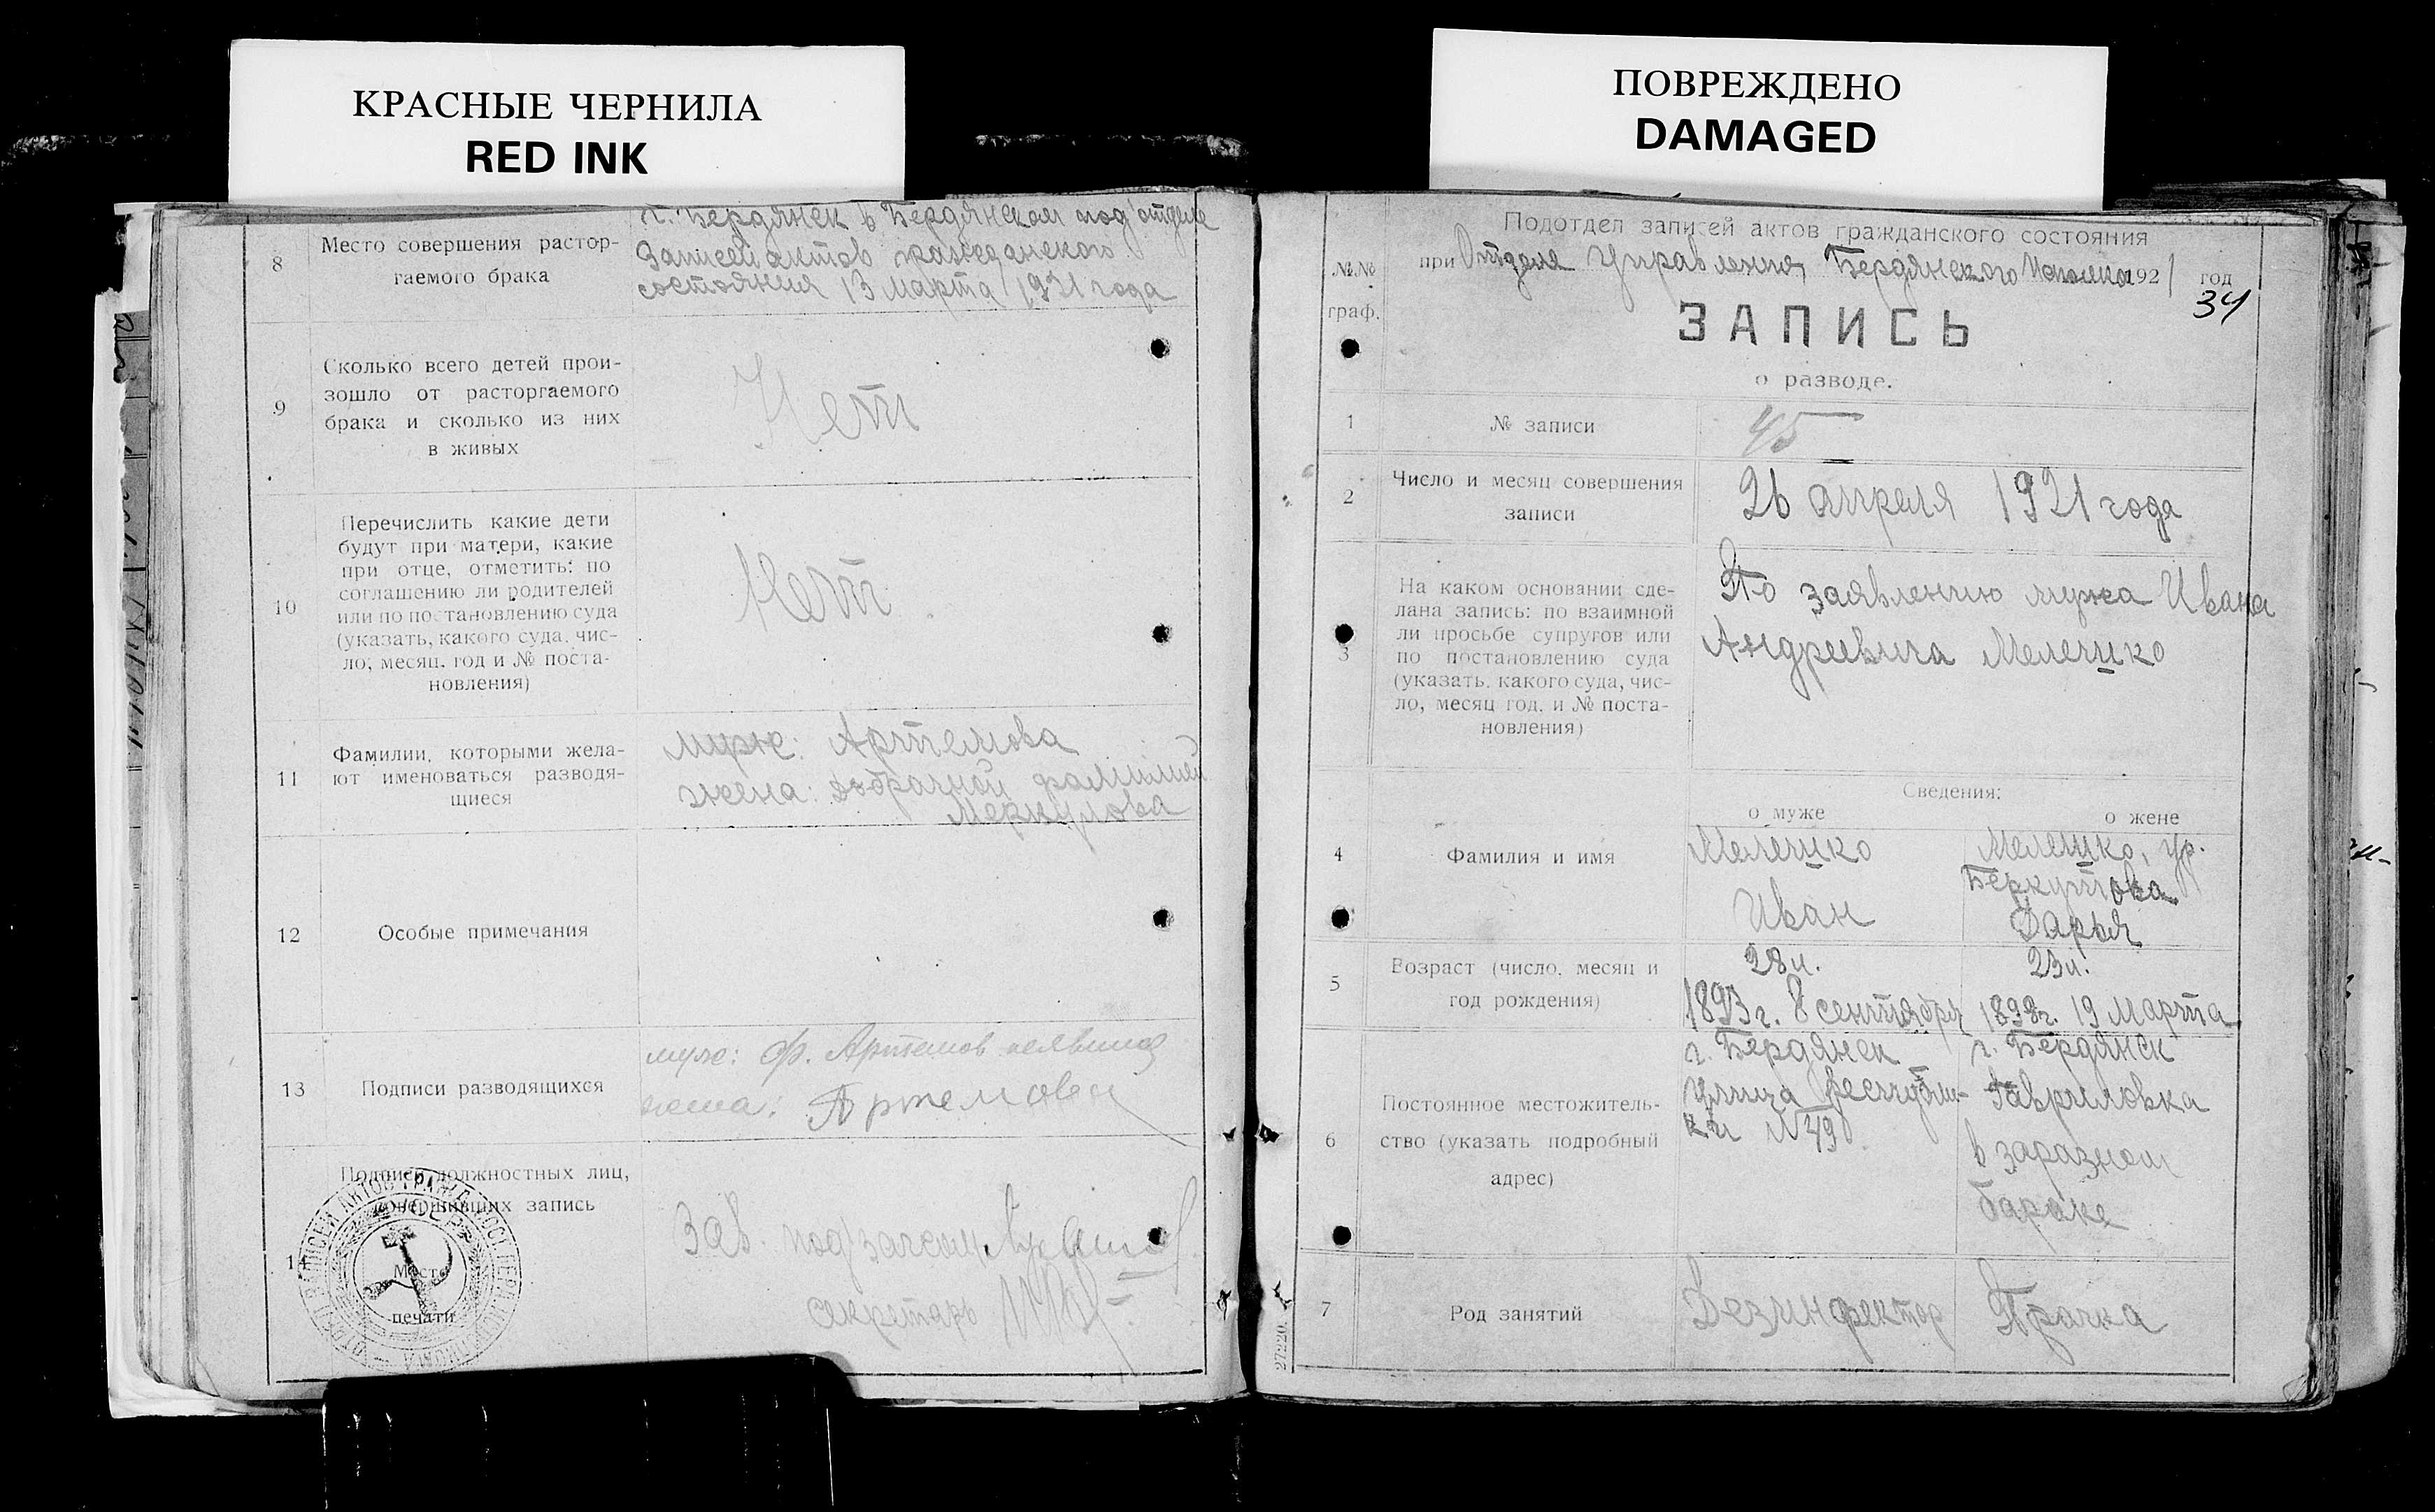 КРАСНЫЕ ЧЕРНИЛА
RED INK
ПОВРЕЖДЕНО
DAMAGED
8
Место совершения растор-
гаемого брака
г. Бердянск в Бердянском подотделе
Записей актов гражданского
состояния 13 Марта 1921 года
9
Сколько всего детей прои-
зошло от расторгаемого
брака и сколько из них
в живых
Нет
10
Перечислить какие дети
будут при матери, какие
при отце, отметить: по
соглашению ли родителей
или по постановлению суда
(указать, какого суда, чис-
ло, месяц, год и № поста-
новления)
Нет
11
Фамилии, которыми жела-
ют именоваться разводя-
щиеся
муж: Артемова
жена: добрачной фамилией
Меркулова
12
Особые примечания
13
Подписи разводящихся
муж: ф. Артемов
жена: Артемова
14
Подписи должностных лиц,
совершивших запись
Место
печати
Зав. под
секретарь
Подотдел записей актов гражданского состояния
№№
граф.
при Отделе Управления, Бердянского 1921 год
34
ЗАПИСЬ
о разводе.
1
№ записи
45
2
Число и месяц совершения
записи
26 апреля 1921 года
3
На каком основании сде-
лана запись: по взаимной
ли просьбе супругов или
по постановлению суда
(указать, какого суда, чис-
ло, месяц, год, и № поста-
новления)
По заявлению мужа Ивана
Андреевича Мелешко
Сведения:
о муже
о жене
4
Фамилия и имя
Мелешко
Иван
Мелешко, ур.
Беркутова
Дарья
5
Возраст (число, месяц и
год рождения)
28 л.
1893 г. 8 сентября
23 л.
1898 г. 19 марта
6
Постоянное местожитель-
ство (указать подробный
адрес)
г. Бердянск
улица Республи-
ки № 49
г. Бердянск
Гавриловка
в заразном
бараке
7
Род занятий
Дезинфектор
Прачка
27220.